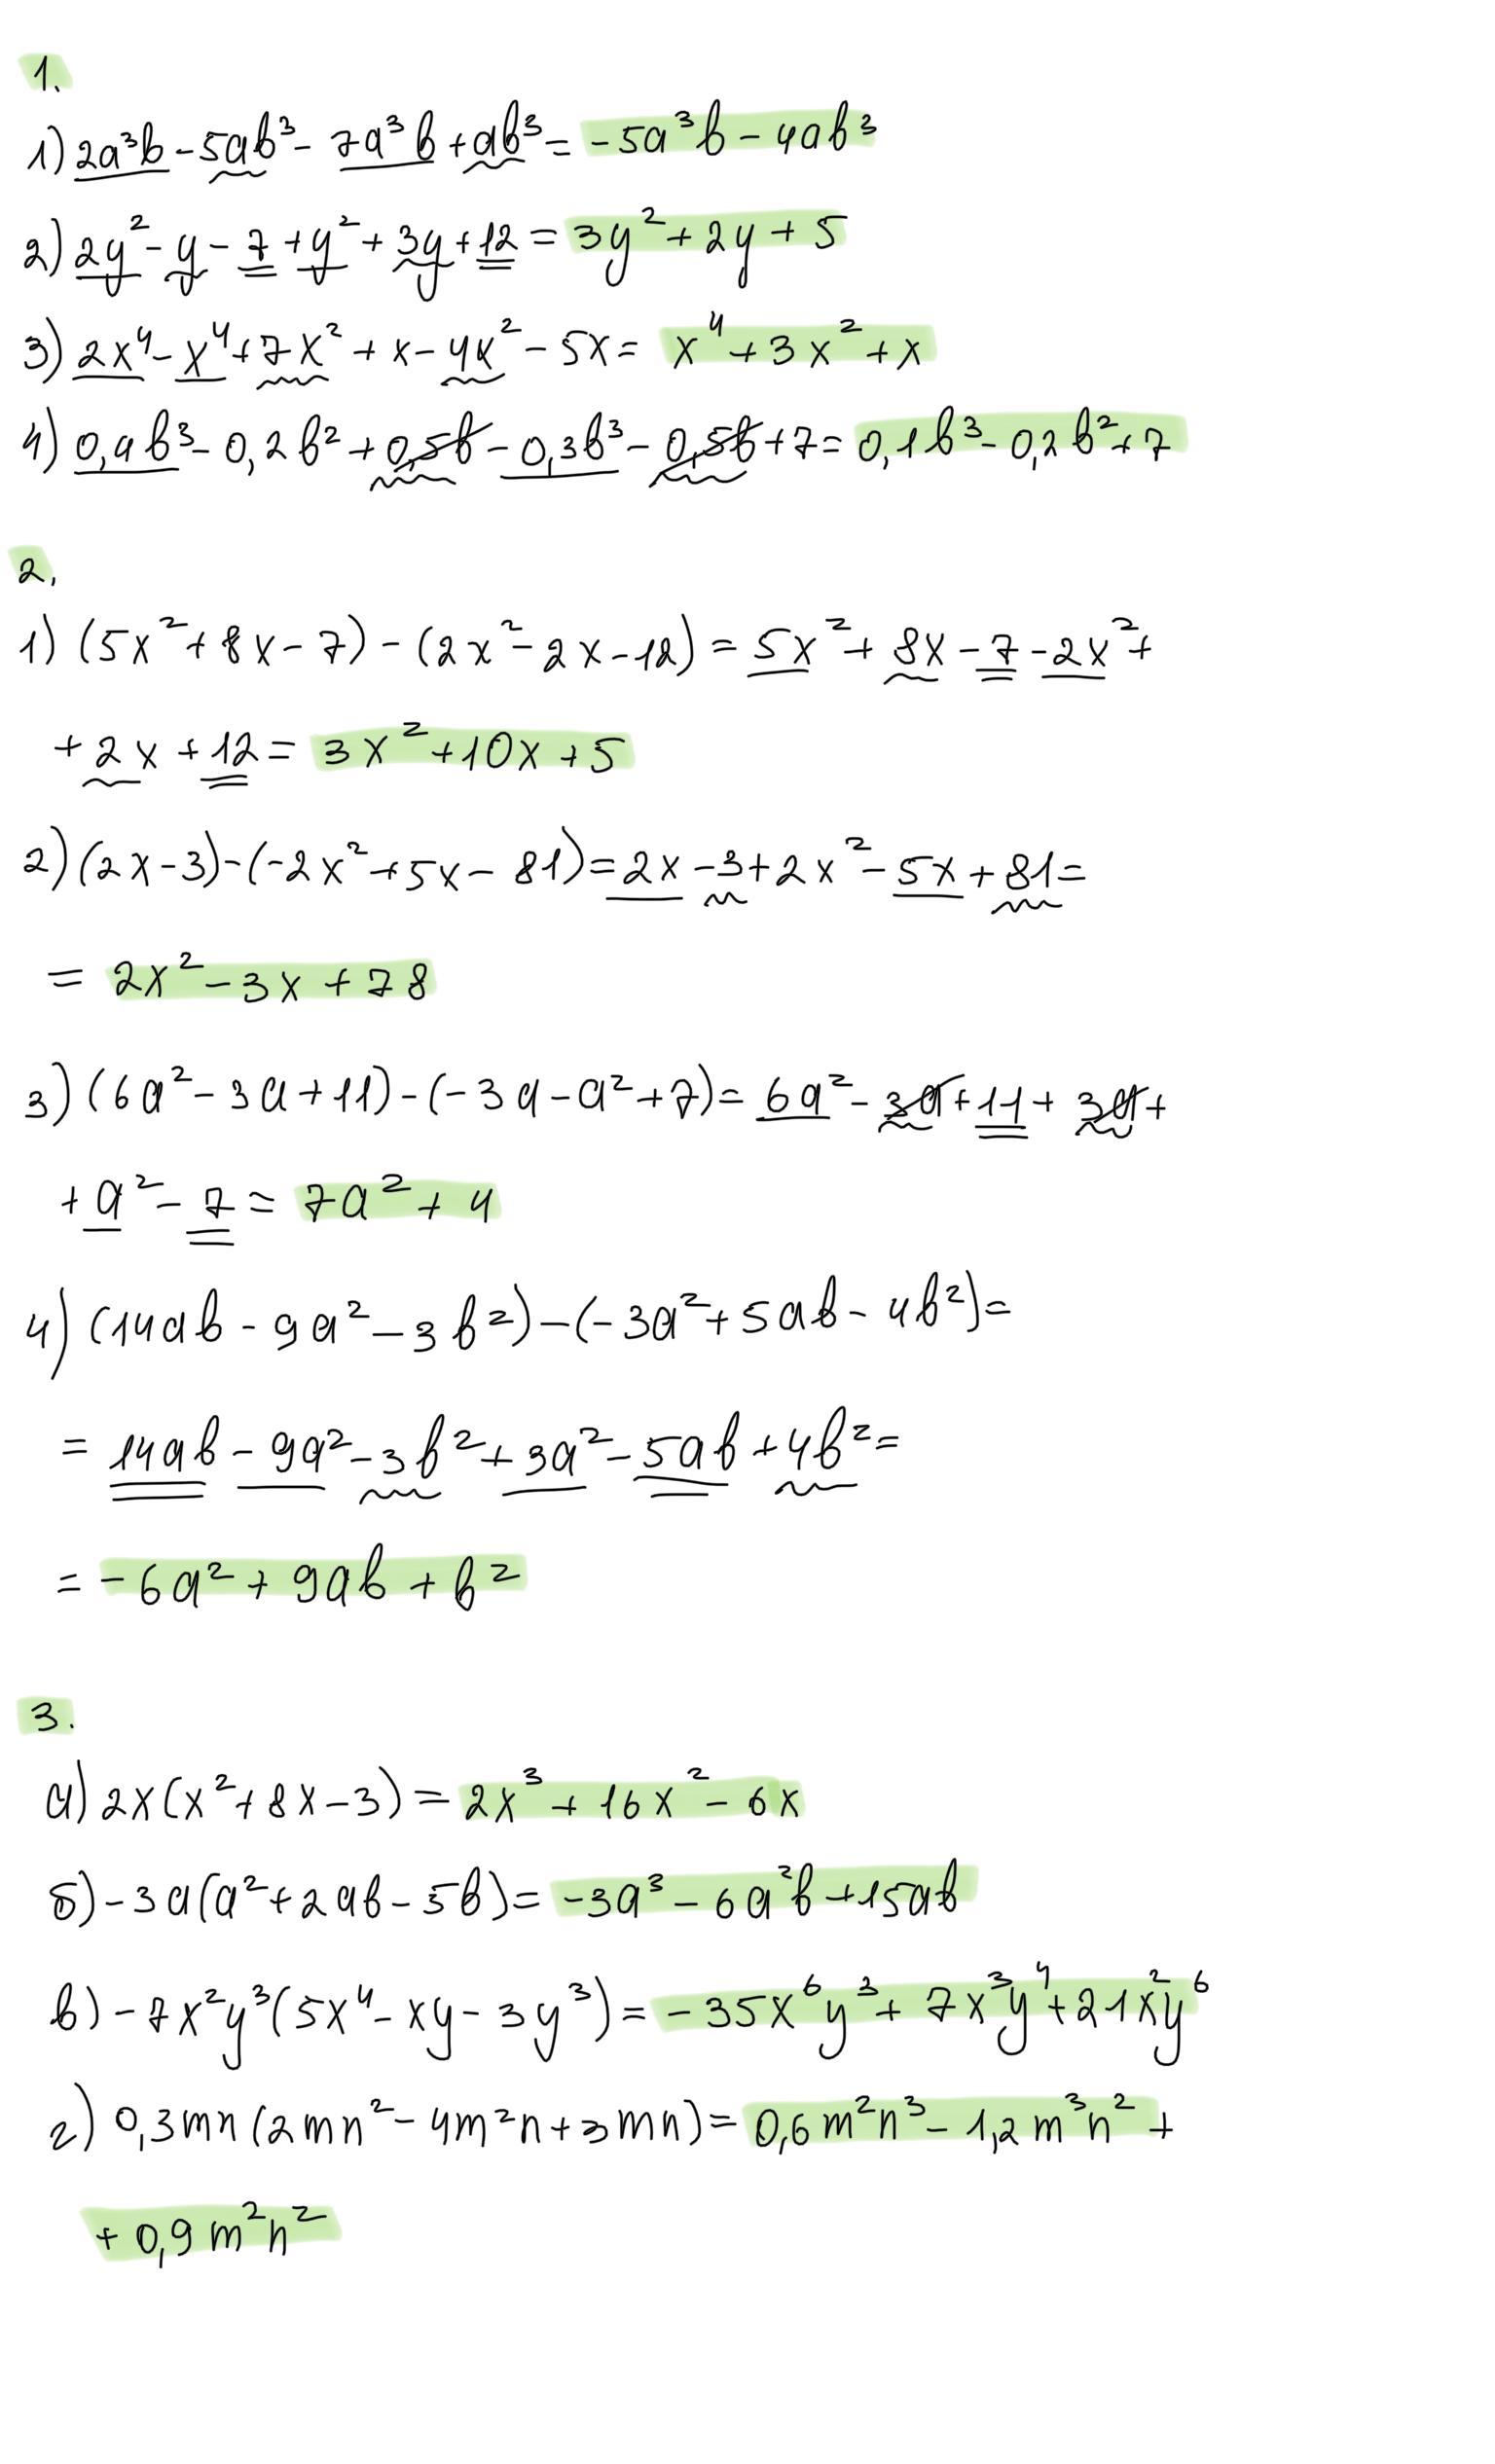 1.
1) 2a³b - 5ab³ - 7a³b + ab³ = -5a³b - 4ab³
2) 2y² - y - 7 + y² + 3y + 12 = 3y² + 2y + 5
3) 2x⁴ - x⁴ + 7x² + x - 4x² - 5x = x⁴ + 3x² + x
4) 0,4b³ - 0,2b² + 0,5b - 0,3b³ - 0,5b + 7 = 0,1b³ - 0,2b² + 7
2.
1) (5x² + 8x - 7) - (2x² - 2x - 12) = 5x² + 8x - 7 - 2x² +
+ 2x + 12 = 3x² + 10x + 5
2) (2x - 3) - (-2x² + 5x - 81) = 2x - 3 + 2x² - 5x + 81 =
= 2x² - 3x + 78
3) (6a² - 3a + 11) - (-3a - a² + 7) = 6a² - 3a + 11 + 3a +
+ a² - 7 = 7a² + 4
4) (14ab - 9a² - 3b²) - (-3a² + 5ab - 4b²) =
= 14ab - 9a² - 3b² + 3a² - 5ab + 4b² =
= -6a² + 9ab + b²
3.
а) 2x(x² + 8x - 3) = 2x³ + 16x² - 6x
б) -3a(a² + 2ab - 5b) = -3a³ - 6a²b + 15ab
в) -7x²y³(5x⁴ - xy - 3y³) = -35x⁶y³ + 7x³y⁴ + 21x²y⁶
г) 0,3mn(2mn² - 4m²n + 3mn) = 0,6m²n³ - 1,2m³n² +
+ 0,9m²n²